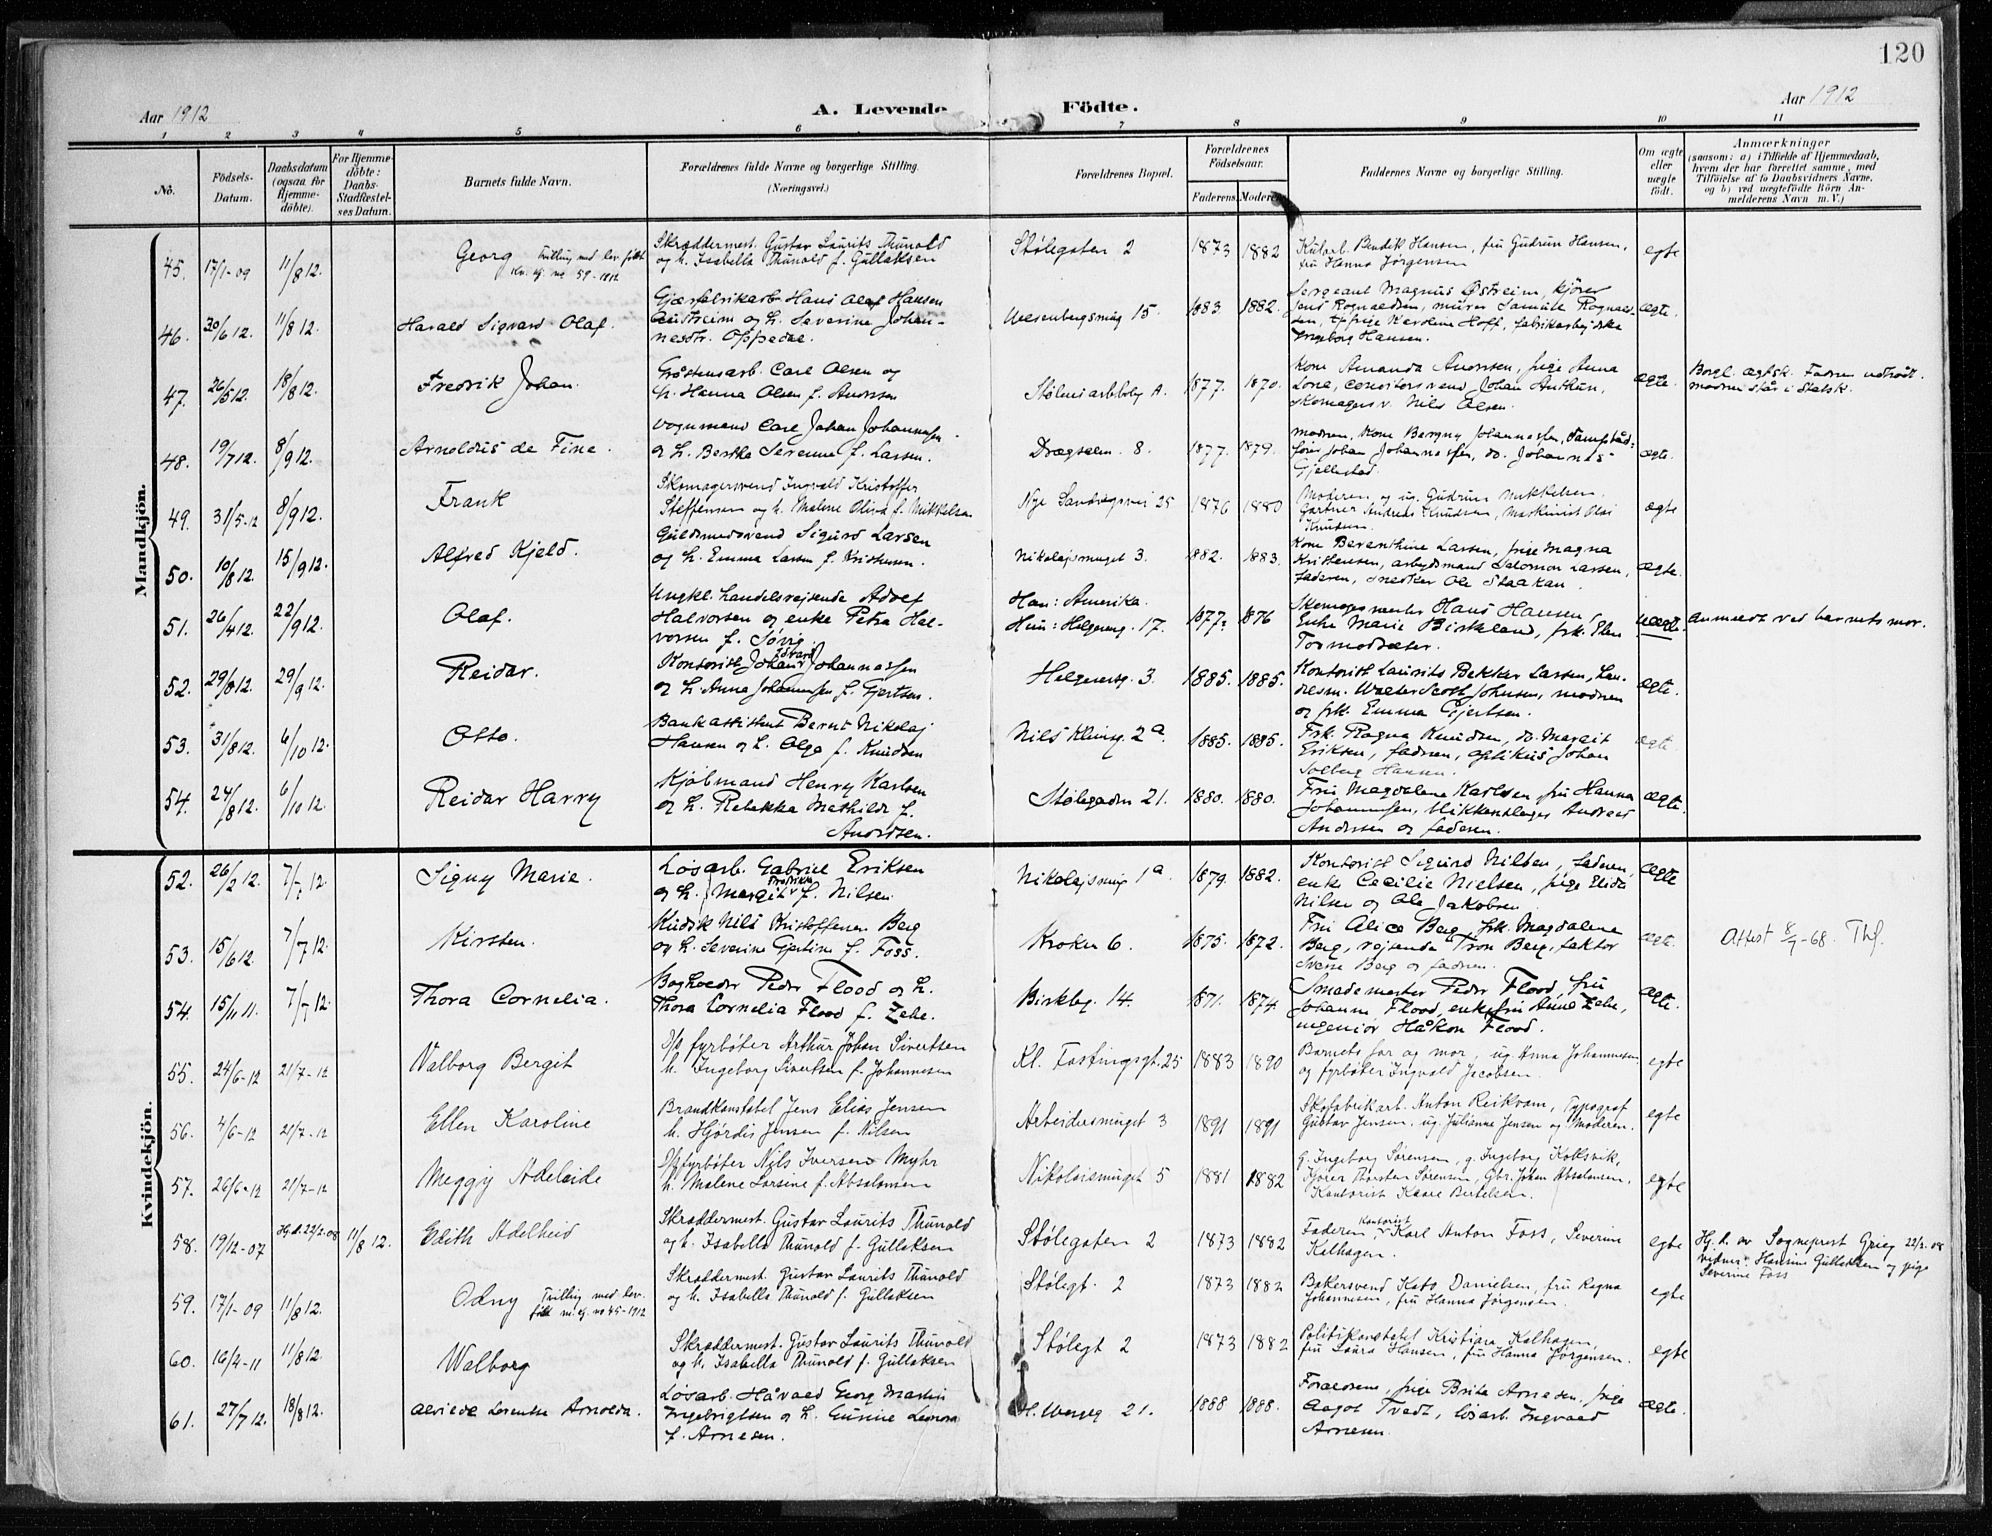 120
Aar 1912
A. Levende Födte.
Aar 1912
1 2 3 4 5 6 7 8 9 10 11
No.
Födsels-Datum.
Daabsdatum (ogsaa for Hjemme-döbte).
For Hjemme-döbte: Daabs-Stadfæstel-ses Datum.
Barnets fulde Navn.
Forældrenes fulde Navne og borgerlige Stilling.
(Næringsvei.)
Forældrenes Bopæl.
Forældrenes Födselsaar.
Faderens. Moderens
Faddernes Navne og borgerlige Stilling.
Om ægte eller uægte födt.
Anmærkninger
(saasom: a) i Tilfælde af Hjemmedaab, hvem der har forrettet samme, med Tilföielse af to Daabsvidners Navne, og b) ved uægtefödte Börn An-melderens Navn m. V.)
Mandkjön.
45. 17/1-09 11/8 12. Georg Tvilling med lev. født kv. cfj. no 59-1912
Skræddermest. Gustav Laurits Thunold
og h. Isabella Thunold f. Gullaksen
Stølegaten 2 1873 1882
Bendik Hansen, fru Gudrun Hansen,
fru Hanna Jørgensen
egte
46. 30/6 12. 11/8 12. Harald Sigvard Olaf.
Gjærfabrikarb. Hans Olaf Hansen
Austheim og h. Severine Johan-
nesdtr. Oppedal.
15. 1883. 1882.
Sergeant Magnus Østheim, kjører
Jens Rognaldsen, murer Samuel Rognald-
sen, pige Karoline Hoff, fabrikarbejderske
Ingeborg Hansen.
ægte.
47. 26/5 12. 18/8 12. Fredrik Johan.
Carl Olsen og
h. Hanna Olsen f. Andersen
A. 1877. 1870.
Kone Amanda Andersen, pige Anna
Lone, conditorsvend Johan
Skomagersv. Nils Olsen.
ægte.
Borgl. ægtesk. Fadren udtrådt.
modren står i Statsk.
48. 19/7 12. 8/9 12. Arnoldus de Fine.
Vognmand Carl Johan Johannessen
og h. Bertha Severine f. Larsen.
Dregsalm. 8. 1877. 1879.
Modren, Kone Bergny Johannessen,
Johan Johannessen, do. Johannes
Gjellestad.
ægte.
49. 31/5-12 8/9 12. Frank
Skomagersvend Ingvald Kristoffer
Steffensen og h. Malene Oliva f. Mikkelsen
Nye Sandviksvei 25 1876 1880
Moderen, og ug. Gudrun Mikkelsen.
Gartner Andreas Knudsen, Maskinist Olai
Knudsen.
egte
50. 10/8 12. 15/9 12. Alfred Kjeld.
Guldsmedsvend Sigurd Larsen
og h. Emma Larsen f. Kristensen.
Nikolajsmuget 3. 1882. 1883.
Kone Berenthine Larsen, pige Magna
Kristensen, arbejdsmand Salomon Larsen,
faderen, snedker Ole Staakan.
ægte.
51. 26/4 12. 22/9 12. Olaf.
Ungkl. handelsrejsende Adolf
Halvorsen og enke Petra Hal-
vorsen f. Søvig
Han: Amerika.
Hun: Helgeseng. 17. 1877. 1876
Skomagermester Hans Hansen,
Enke Marie Birkeland, frk. Elen
Tormodsæter.
uægte.
Anmeldt ved barnets mor.
52. 29/8 12. 29/9 12. Reidar.
Kontorist Johan Edvard Johannessen
og h. Anna Johannessen f. Gjertsen.
Helgeseng. 3. 1885. 1885.
Kontorist Laurits Bekker Larsen, Lan-
desm. Walter Scott Johnsen, modren
og frk. Emma Gjertsen.
ægte.
53. 31/8 12. 6/10 12. Otto.
Bankassistent Bernt Nikolaj
Hansen og h. Olga f. Knudsen
Nils Klimsg. 2a. 1885. 1885.
Frk. Ragna Knudsen, do. Margit
Eriksen, fadren, optikus Johan
Solberg Hansen.
ægte.
54. 24/8 12. 6/10 12. Reidar Harry
Kjøbmand Henry Karlsen
og h. Rebekka Mathilde f.
Andersen.
Stølegaden 21. 1880. 1880.
Fru Magdalene Karlsen, fru Hanna
Johannessen, blikkenslager Andreas
Andersen og faderen.
ægte.
Kvindekjön.
52. 26/2 12. 7/7 12. Signy Marie.
Løsarb. Gabriel Eriksen
og h. Margit Fredrikke f. Nilsen.
Nikolajsmug 1a. 1879. 1882.
Kontorist Sigurd Nilsen, fadren,
enke Cecilie Nielsen, pige Elida
Nilsen og Ole Jakobsen
ægte
53. 15/6 12. 7/7 12. Kirsten.
Nils Kristoffersen Berg
og h. Severine Gjertine f. Foss.
Kroken 6. 1875. 1872.
Fru Alice Berg, frk. Magdalene
Berg, rejsende Tron Berg, faktor
Sverre Berg og fadren.
ægte.
Attest 8/7-68. Thf.
54. 15/11 11. 7/7 12. Thora Cornelia.
Bogholder Peder Flood og h.
Thora Cornelia Flood f. Zehe.
Birkebg. 14. 1871. 1874.
Smedemester Peder Flood, fru
Johanne Flood, enkefru Anne Zehe,
ingeniør Håkon Flood.
ægte.
55. 24/6-12 21/7-12 Valborg Bergit
D/S fyrbøter Arthur Johan Sivertsen
h. Ingeborg Sivertsen f. Johannesen
Kl. Fostingsgt. 25 1883 1890
Barnets far og mor, ug. Anna Johannesen
og fyrbøter Ingvald Jacobsen.
egte
56. 4/6-12 21/7-12 Ellen Karoline
Brandkonstabel Jens Elias Jensen
h. Hjördis Jensen f. Nilsen
Arbeidersmuget 3 1891 1891
Skofabrikarb. Anton Reikvam, Typograf
Gustav Jensen. ug. Julianne Jensen og Moderen.
egte
57. 26/6-12 21/7-12 Meggy Adelaide
D/S fyrbøter Nils Iversen Myhr
h. Malene Larsine f. Absalonsen
Nikolaismuget 5 1881 1882
g. Ingeborg Sørensen, g. Ingeborg Koksvik,
Kjører Thorsten Sørensen, Gbr. Johan Absalonsen,
Kontorist Kaare Bertelsen.
egte
58. 19/12-07 Hj.d. 22/2-08 11/8 12. Edith Adelheid
Skræddermest. Gustav Laurits Thunold
og h. Isabella Thunold f. Gullaksen
Stølegaten 2 1873 1882
Faderen, Kontorist Karl Anton Foss, Severine
Kalhagen.
egte
Hj. d. av Sogneprest Grieg 22/2-08
vidner: Hansine Gullaksen og pige
Severine Foss
59. 17/1-09 11/8 12. Odny Tvilling med lev. født m. cfj. no 45-1912
Skræddermest. Gustav Laurits Thunold
og h. Isabella Thunold f. Gullaksen
Stølegt. 2 1873 1882
Bakersvend Kato Danielsen, fru Ragna
Johannesen, fru Hanna Jørgensen.
egte
60. 16/4-11 11/8 12. Walborg
Skræddermest. Gustav Laurits Thunold
og h. Isabella Thunold f. Gullaksen
Stølegt 2 1873 1882
Politikonstabel Kristian Kalhagen,
fru Laura Hansen, fru Hanna Jørgensen.
egte
61. 27/7 12. 18/8 12. Alvilde Lorentse Arnolda.
Løsarb. Håvald Georg Martin
Ingebrigtsen og h. Gurine Leonora
f. Arnesen.
21. 1888 1888.
Forældrene, pige Brita Arnesen, pige
Aagot Tvedt, løsarb. Ingvald
Arnesen.
ægte.